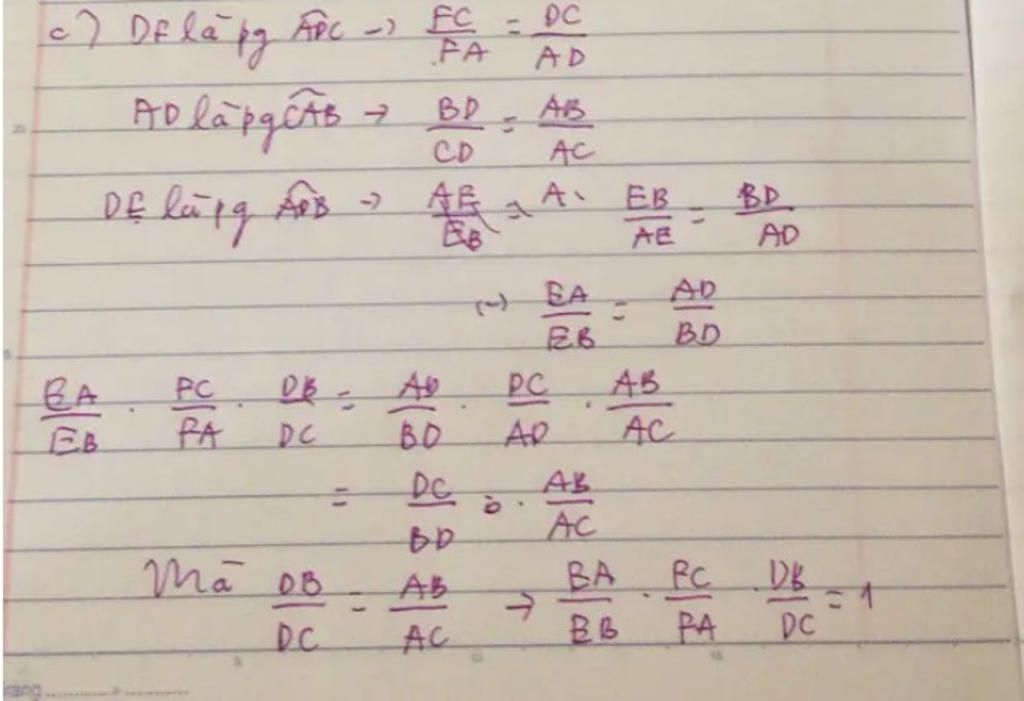 c) DF là pg ADC → FC/FA = DC/AD
AD là pg CAB → BD/CD = AB/AC
DE là pg ADB → AE/EB = A EB/AE = BD/AD
(→) EA/EB = AD/BD
EA/EB . FC/FA . DB/DC = AD/BD . DC/AD . AB/AC
= DC/BD . AB/AC
Mà DB/DC = AB/AC → EA/EB . FC/FA . DB/DC = 1